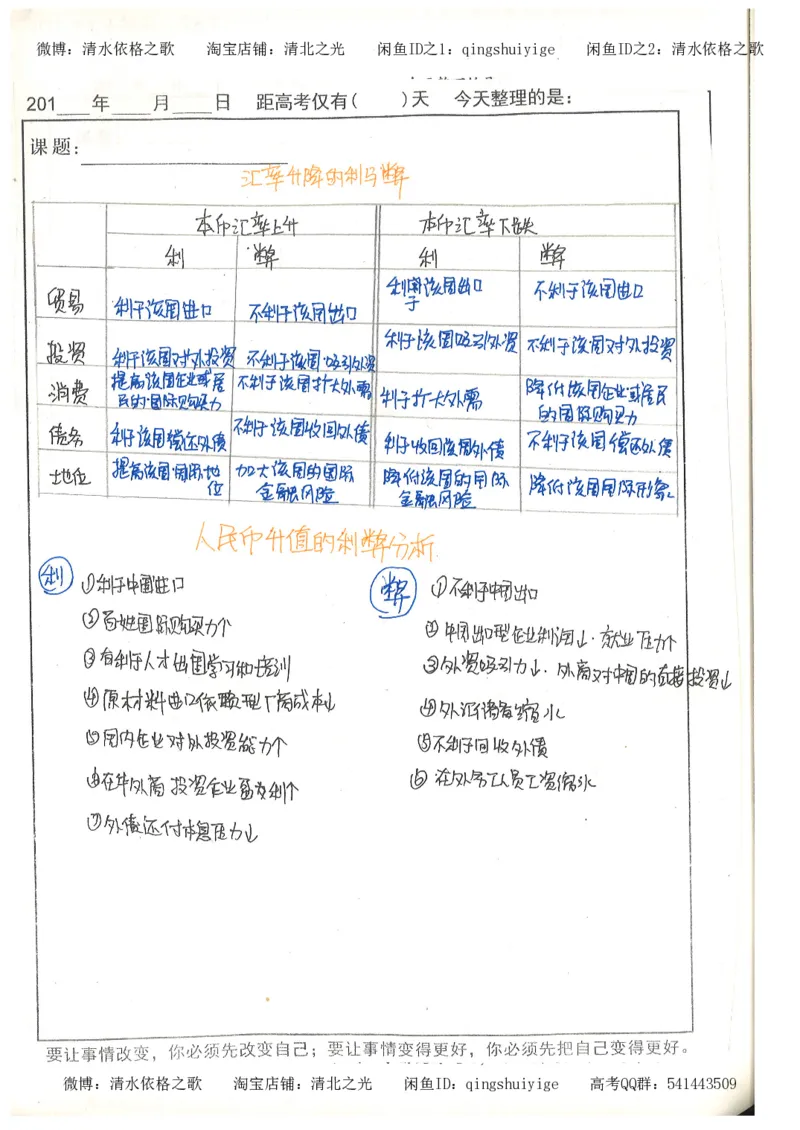 微博：清水依格之歌 淘宝店铺：清北之光 闲鱼ID之1：qingshuiyige 闲鱼ID之2：清水依格之歌
201____年____月____日 距高考仅有( )天 今天整理的是：
课题：
汇率升降的利与弊
本币汇率上升 本币汇率下跌
利 弊 利 弊
贸易 利于该国进口 不利于该国出口 利于该国出口 不利于该国进口
投资 利于该国对外投资 不利于该国吸引外资 利于该国吸引外资 不利于该国对外投资
消费 提高该国企业或居民的国际购买力 不利于该国扩大外需 利于扩大外需 降低该国企业或居民的国际购买力
债务 利于该国偿还外债 不利于该国收回外债 利于收回该国外债 不利于该国偿还外债
地位 提高该国国际地位 加大该国的国际金融风险 降低该国的国际金融风险 降低该国国际形象
人民币升值的利弊分析
利
①利于中国进口
②百姓国际购买力个
③有利于人才出国学习和培训
④原材料进口依赖型厂商成本↓
⑤国内企业对外投资能力个
⑥在华外商投资企业盈利个
⑦外债还付本息压力↓
弊
①不利于中国出口
②中国出口型企业利润↓．就业压力个
③外资吸引力↓．外商对中国的直接投资↓
④外汇储备缩水
⑤不利于回收外债
⑥在外务工人员工资缩水
要让事情改变，你必须先改变自己；要让事情变得更好，你必须先把自己变得更好。
微博：清水依格之歌 淘宝店铺：清北之光 闲鱼ID：qingshuiyige 高考QQ群：541443509